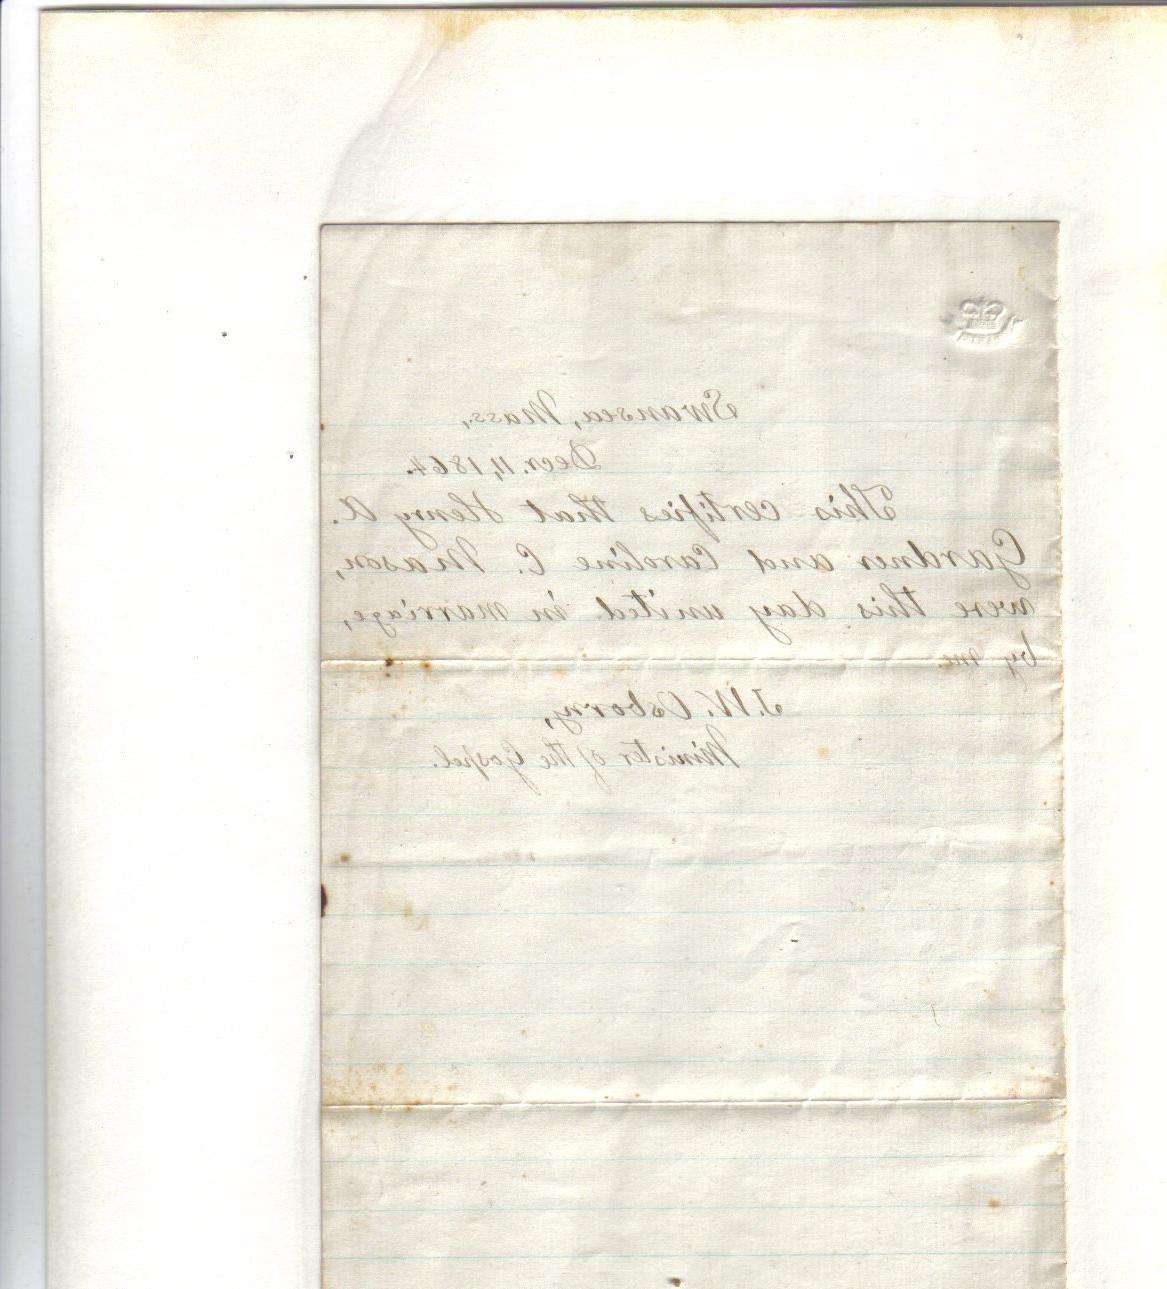 Swansea, Mass.,
Decr. 11, 1864.
This certifies that Henry A.
Gardner and Caroline C. Mason,
were this day united in marriage,
by me.
J. W. Osborn,
Minister of the Gospel.